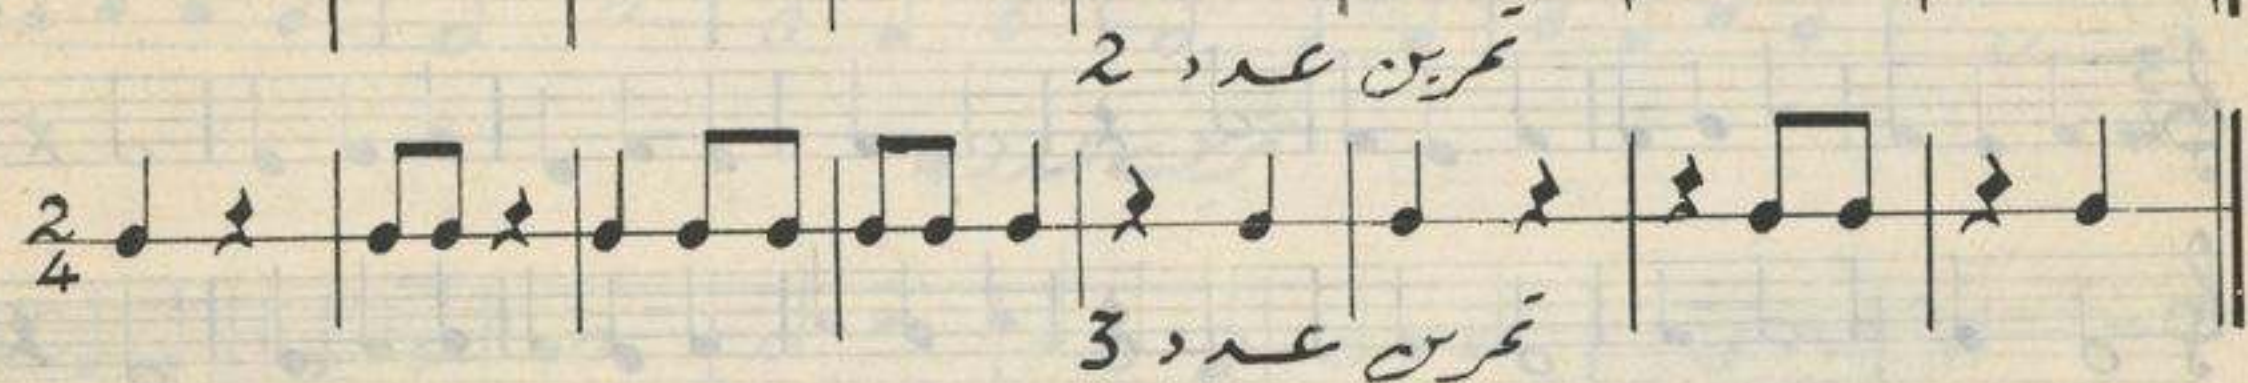 تمرين عدد 2
2
4
تمرين عدد 3